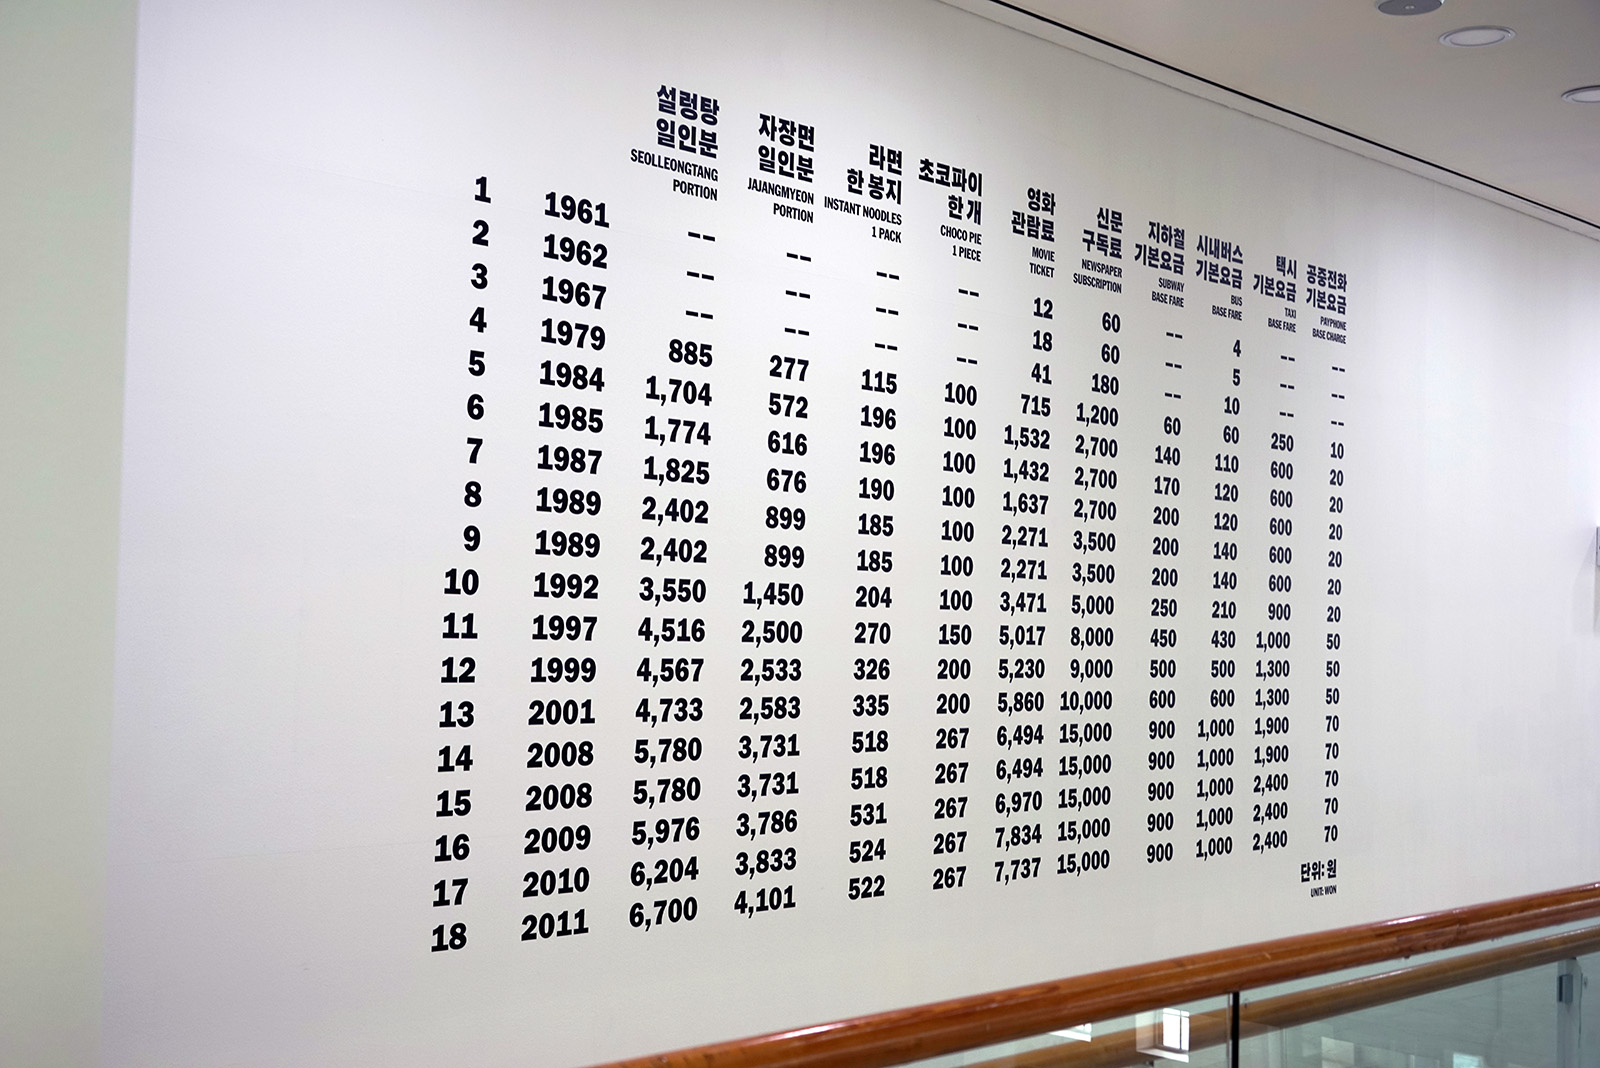 설렁탕
일인분
SEOLLEONGTANG
PORTION
자장면
일인분
JAJANGMYEON
PORTION
라면
한 봉지
INSTANT NOODLES
1 PACK
초코파이
한 개
CHOCO PIE
1 PIECE
영화
관람료
MOVIE
TICKET
신문
구독료
NEWSPAPER
SUBSCRIPTION
지하철
기본요금
SUBWAY
BASE FARE
시내버스
기본요금
BUS
BASE FARE
택시
기본요금
TAXI
BASE FARE
공중전화
기본요금
PAYPHONE
BASE CHARGE
1 1961 -- -- -- -- 12 60 -- 4 -- --
2 1962 -- -- -- -- 18 60 -- 5 -- --
3 1967 -- -- -- -- 41 180 -- 10 -- --
4 1979 885 277 115 100 715 1,200 60 60 250 10
5 1984 1,704 572 196 100 1,532 2,700 140 110 600 20
6 1985 1,774 616 196 100 1,432 2,700 170 120 600 20
7 1987 1,825 676 190 100 1,637 2,700 200 120 600 20
8 1989 2,402 899 185 100 2,271 3,500 200 140 600 20
9 1989 2,402 899 185 100 2,271 3,500 200 140 600 20
10 1992 3,550 1,450 204 100 3,471 5,000 250 210 900 20
11 1997 4,516 2,500 270 150 5,017 8,000 450 430 1,000 50
12 1999 4,567 2,533 326 200 5,230 9,000 500 500 1,300 50
13 2001 4,733 2,583 335 200 5,860 10,000 600 600 1,300 50
14 2008 5,780 3,731 518 267 6,494 15,000 900 1,000 1,900 70
15 2008 5,780 3,731 518 267 6,494 15,000 900 1,000 1,900 70
16 2009 5,976 3,786 531 267 6,970 15,000 900 1,000 2,400 70
17 2010 6,204 3,833 524 267 7,834 15,000 900 1,000 2,400 70
18 2011 6,700 4,101 522 267 7,737 15,000 900 1,000 2,400 70
단위: 원
UNIT: WON